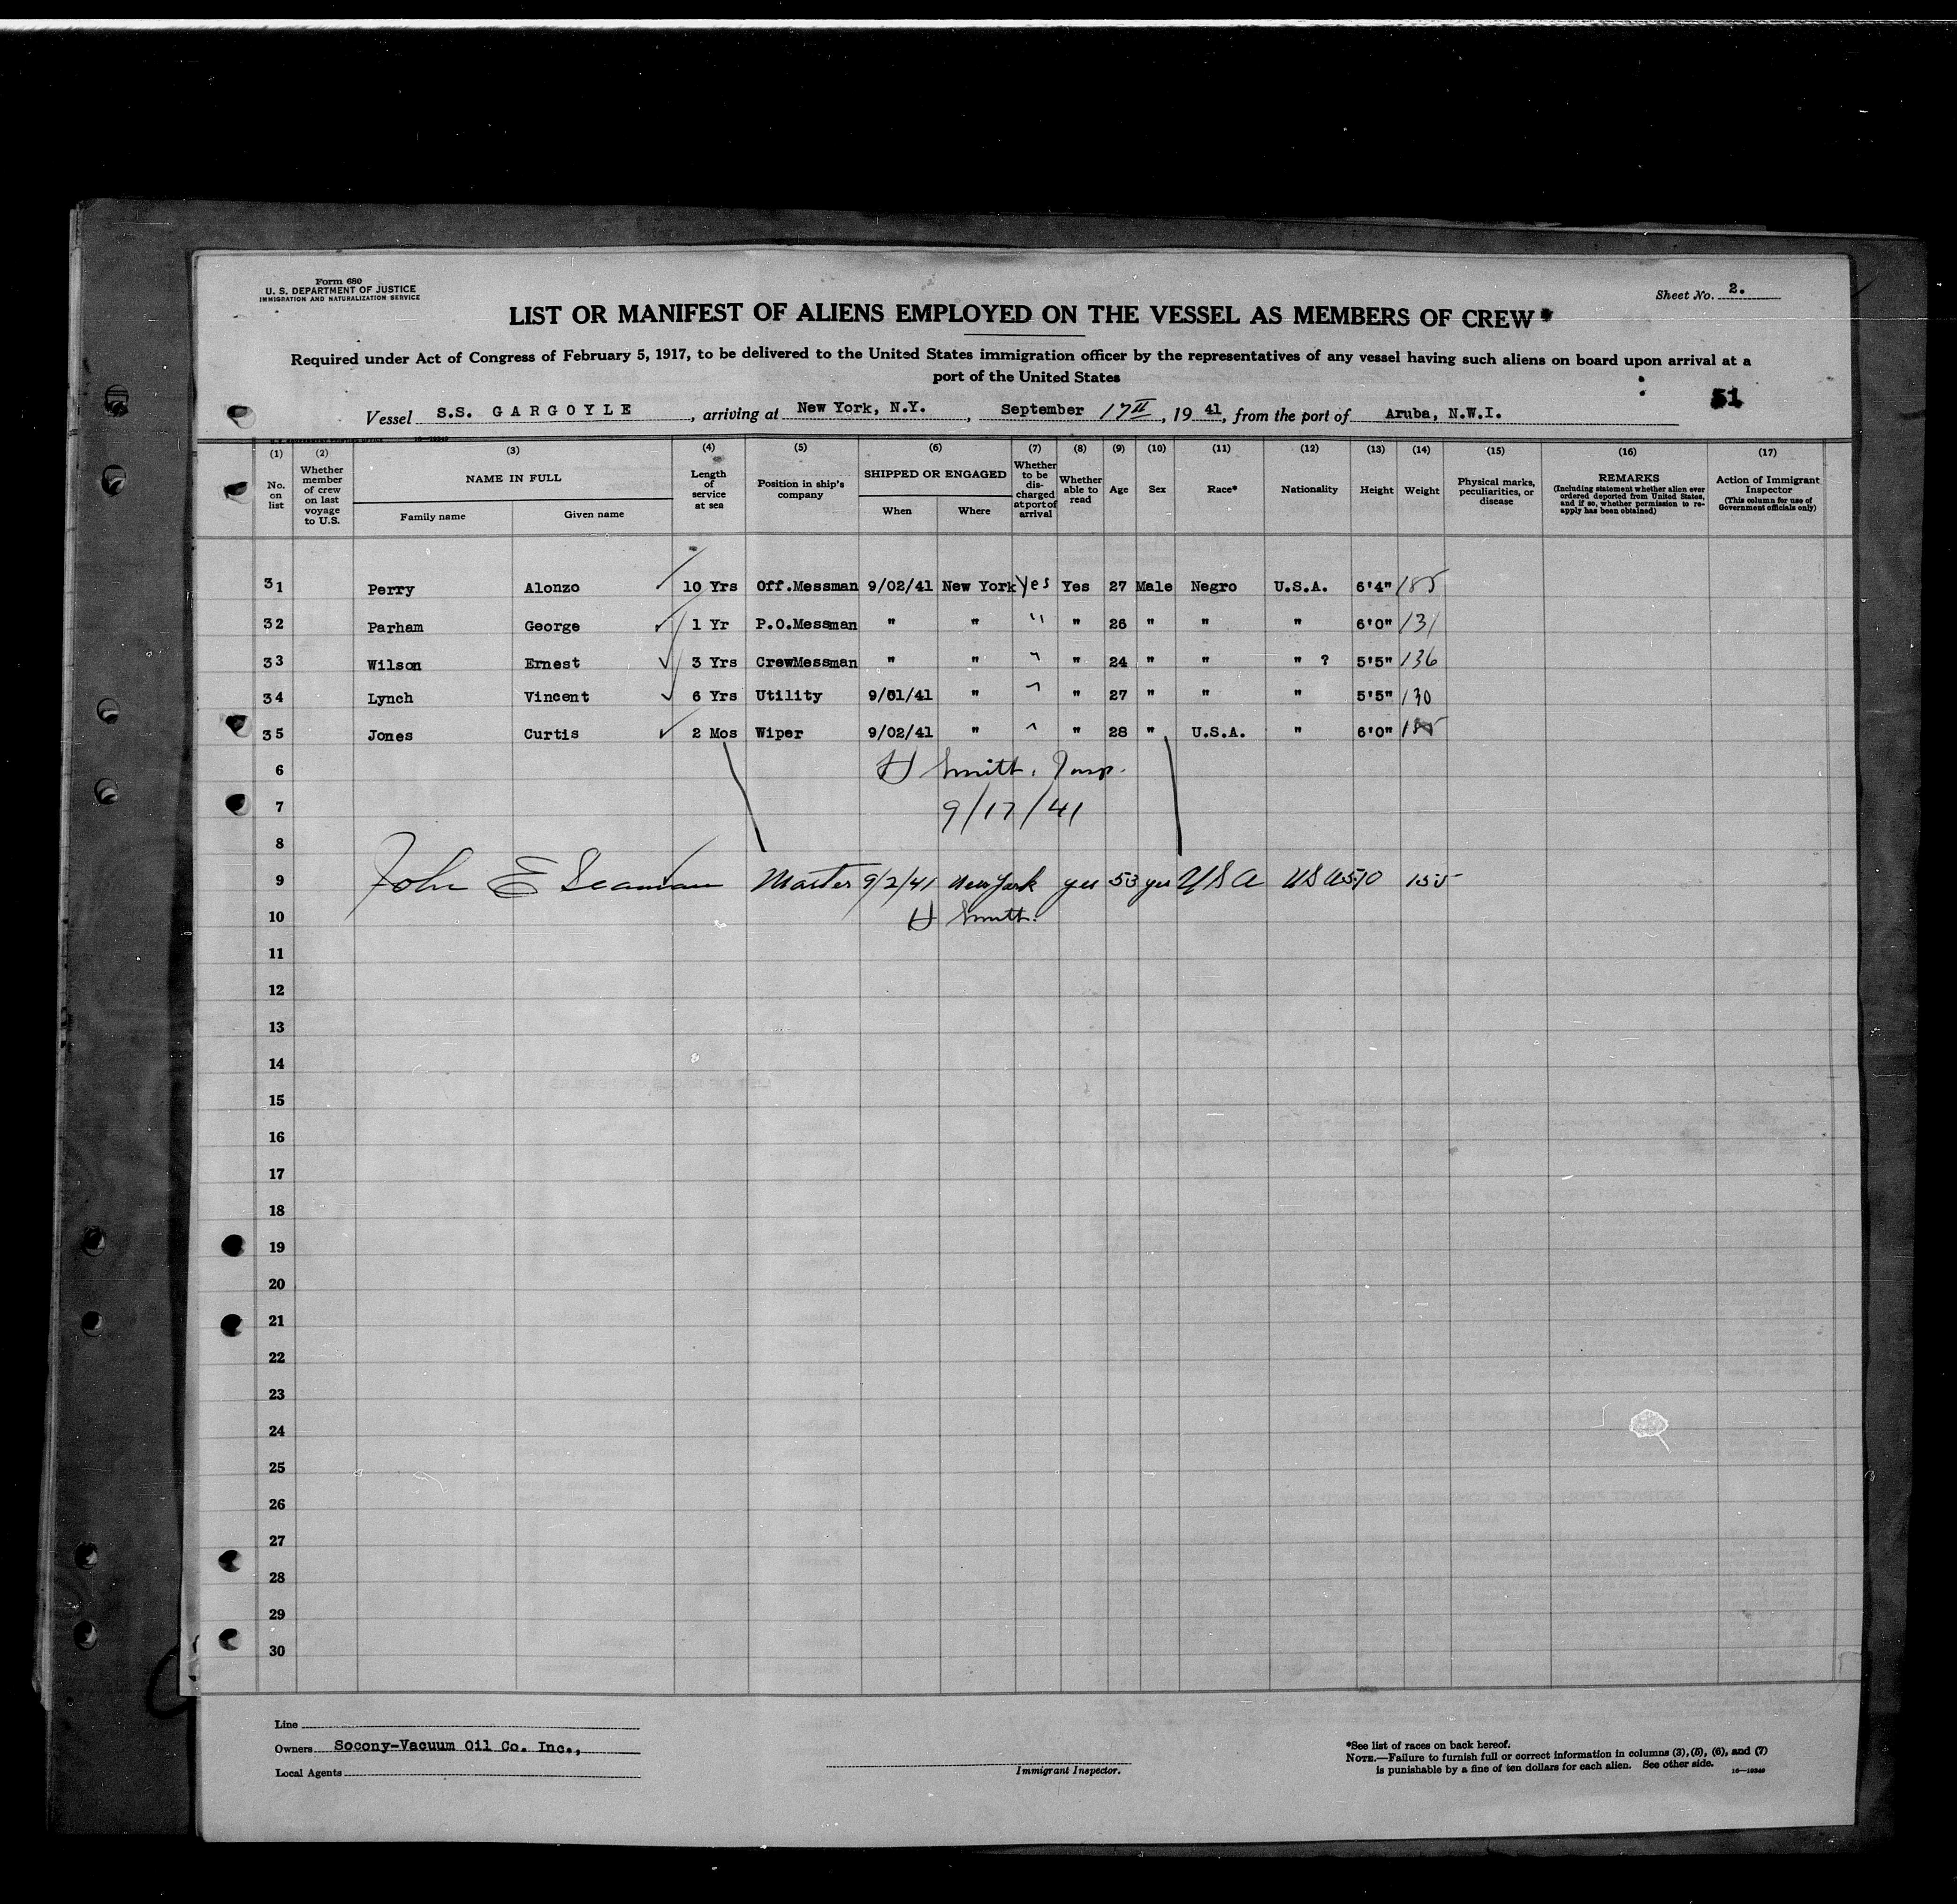 Form 680
U. S. DEPARTMENT OF JUSTICE
IMMIGRATION AND NATURALIZATION SERVICE
Sheet No. 2.
LIST OR MANIFEST OF ALIENS EMPLOYED ON THE VESSEL AS MEMBERS OF CREW*
Required under Act of Congress of February 5, 1917, to be delivered to the United States immigration officer by the representatives of any vessel having such aliens on board upon arrival at a
port of the United States
51
Vessel S.S. GARGOYLE, arriving at New York, N.Y., September 17, 1941, from the port of Aruba, N.W.I.
(1) (2) (3) (4) (5) (6) (7) (8) (9) (10) (11) (12) (13) (14) (15) (16) (17)
No. on list
Whether member of crew on last voyage to U.S.
NAME IN FULL
Family name Given name
Length of service at sea
Position in ship's company
SHIPPED OR ENGAGED
When Where
Whether to be discharged at port of arrival
Whether able to read
Age
Sex
Race*
Nationality
Height
Weight
Physical marks, peculiarities, or disease
REMARKS
(Including statement whether alien ever ordered deported from United States, and if so, whether permission to re-apply has been obtained)
Action of Immigrant Inspector
(This column for use of Government officials only)
31 Perry Alonzo 10 Yrs Off.Messman 9/02/41 New York Yes Yes 27 Male Negro U.S.A. 6'4" 185
32 Parham George 1 Yr P.O.Messman " " " " 26 " " " 6'0" 131
33 Wilson Ernest 3 Yrs CrewMessman " " " " 24 " " " ? 5'5" 136
34 Lynch Vincent 6 Yrs Utility 9/01/41 " " " 27 " " " 5'5" 130
35 Jones Curtis 2 Mos Wiper 9/02/41 " " " 28 " U.S.A. " 6'0"
6 H Smith, Insp.
7 9/17/41
8
9 John E Seaman Master 9/2/41 New York yes 53 yes USA USA 510 155
10 H Smith.
11
12
13
14
15
16
17
18
19
20
21
22
23
24
25
26
27
28
29
30
Line
Owners Socony-Vacuum Oil Co. Inc.,
Local Agents
Immigrant Inspector.
*See list of races on back hereof.
NOTE.—Failure to furnish full or correct information in columns (3), (5), (6), and (7)
is punishable by a fine of ten dollars for each alien. See other side.
16—10349